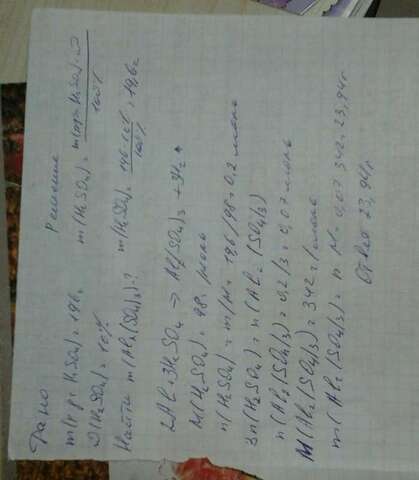 Дано
Решение
m(р-р H₂SO₄) = 196г
ω(H₂SO₄) = 10%
Найти m(Al₂(SO₄)₃)-?
m(H₂SO₄) = m(р-р H₂SO₄)·ω / 100%
m(H₂SO₄) = 196·10% / 100% = 19,6г
2Al + 3H₂SO₄ → Al₂(SO₄)₃ + 3H₂↑
M(H₂SO₄) = 98г/моль
n(H₂SO₄) = m/M = 19,6/98 = 0,2 моль
3n(H₂SO₄) = n(Al₂(SO₄)₃)
n(Al₂(SO₄)₃) = 0,2/3 = 0,07 моль
M(Al₂(SO₄)₃) = 342г/моль
m(Al₂(SO₄)₃) = n·M = 0,07·342 = 23,94г
Ответ 23,94г